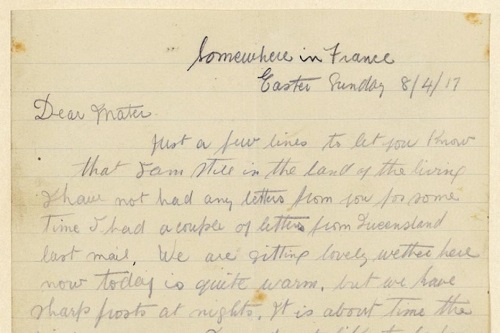 Somewhere in France
Easter Sunday 8/4/17
Dear Mater.
Just a few lines to let you know
that I am still in the land of the living
I have not had any letters from you for some
time I had a couple of letters from Queensland
last mail. We are gitting lovely wether here
now today is quite warm. but we have
sharp frosts at nights. It is about time the